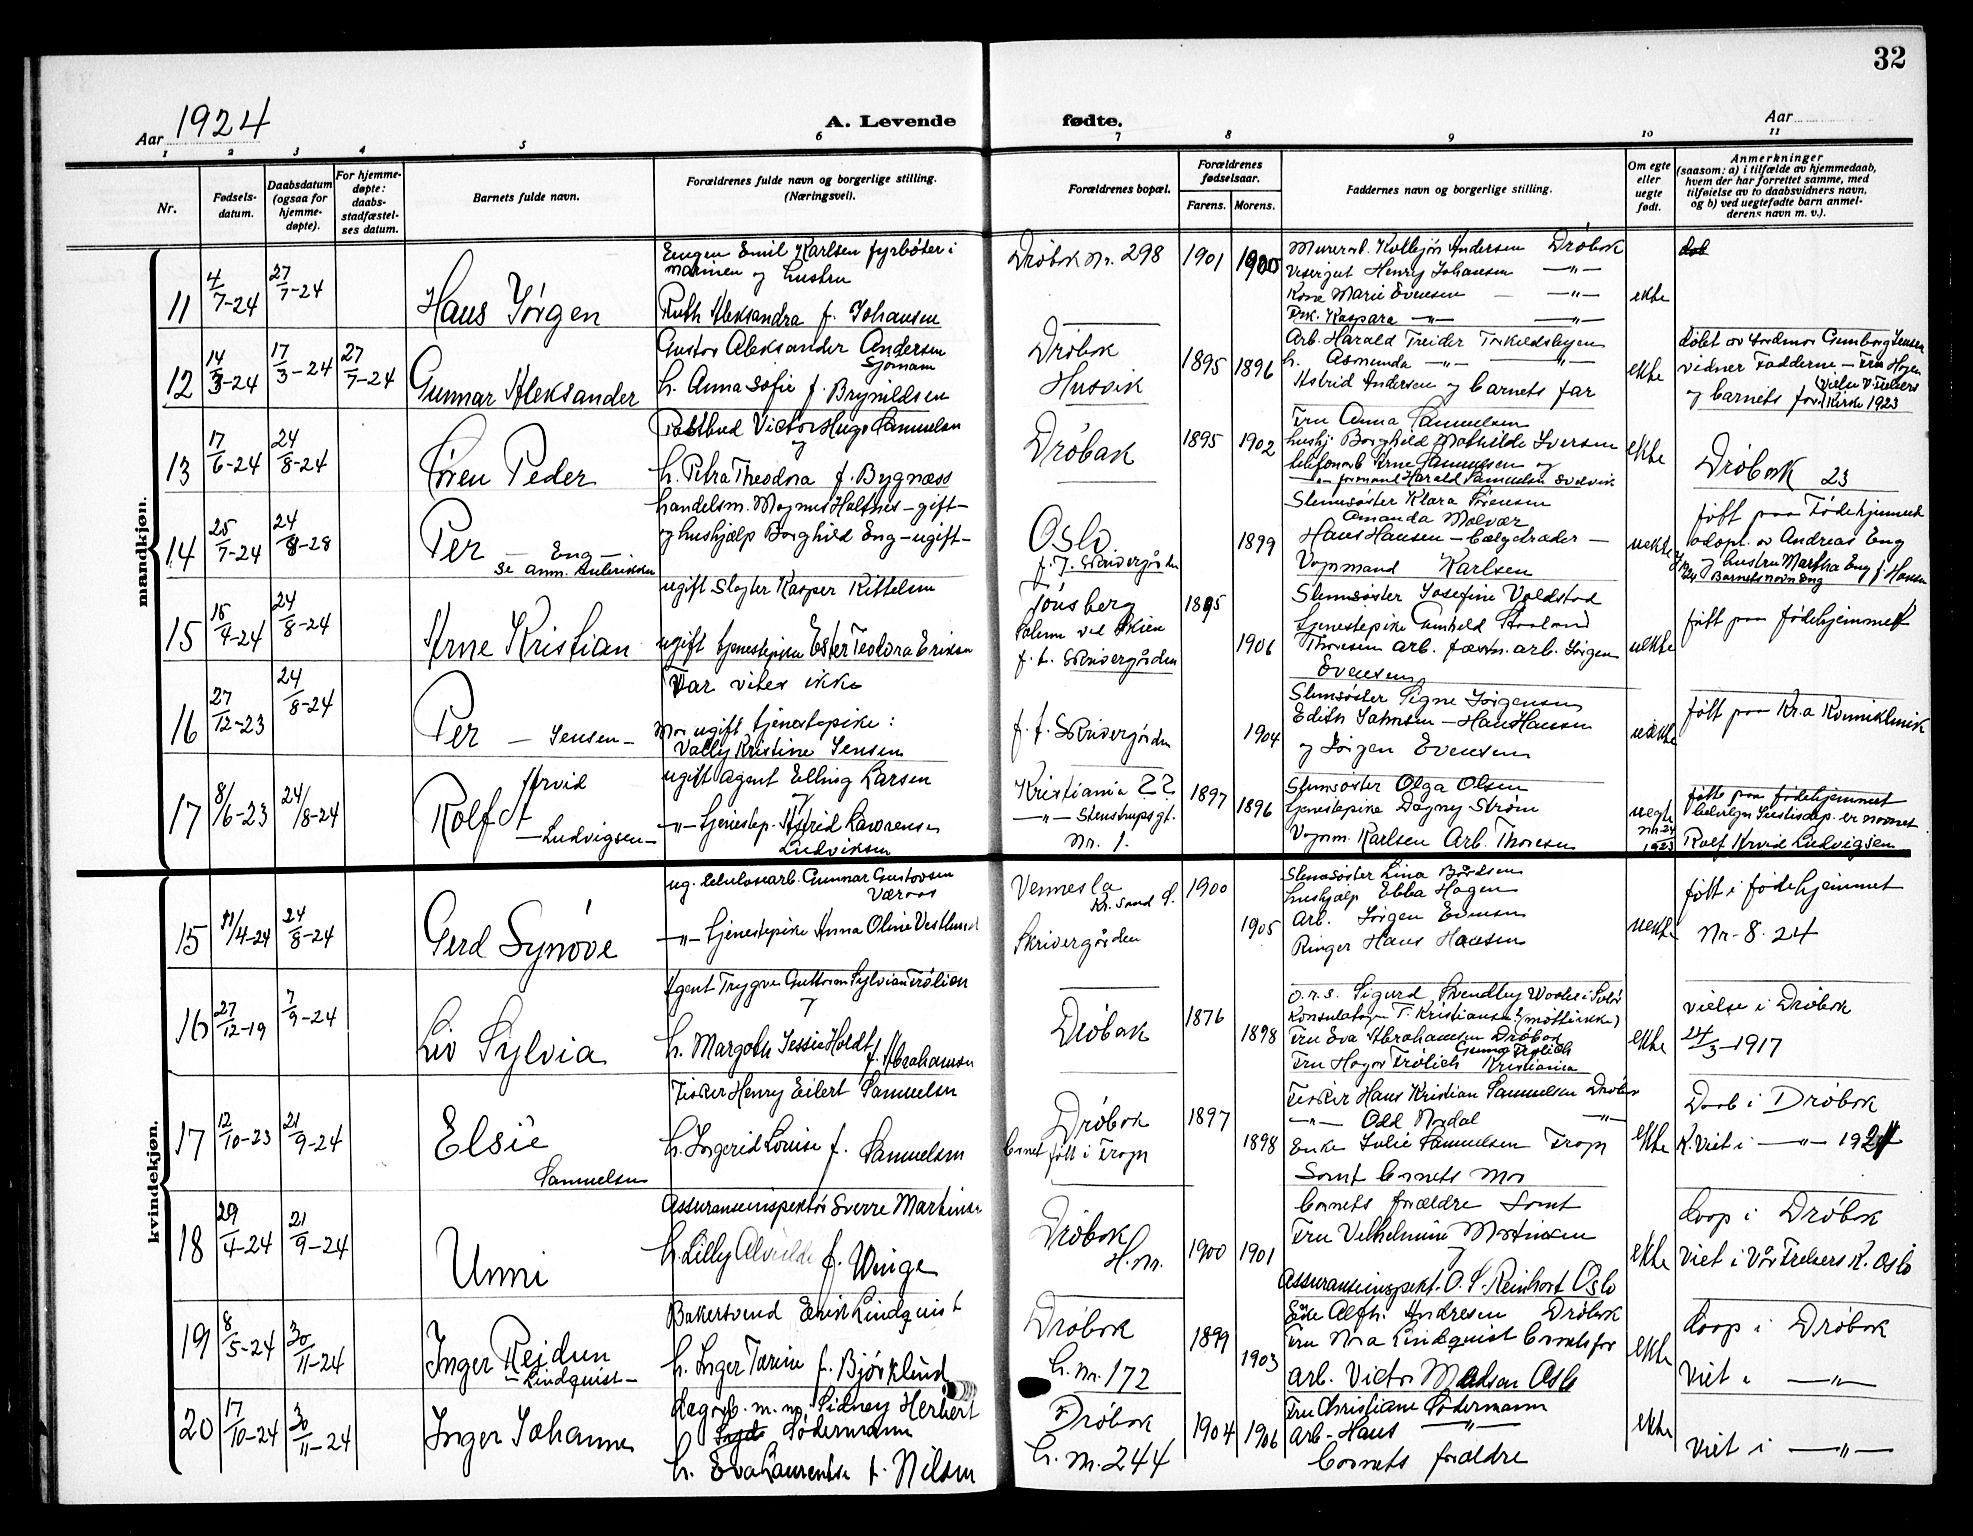 32
Aar 1924
A. Levende fødte.
Aar
1 2 3 4 5 6 7 8 9 10 11
Nr.
Fødsels-
datum.
Daabsdatum
(ogsaa for
hjemme-
døpte).
For hjemme-
døpte:
daabs-
stadfæstel-
ses datum.
Barnets fulde navn.
Forældrenes fulde navn og borgerlige stilling.
(Næringsvei).
Forældrenes bopæl.
Forældrenes
fødselsaar.
Farens. Morens.
Faddernes navn og borgerlige stilling.
Om egte
eller
uegte
født.
Anmerkninger
(saasom: a) i tilfælde av hjemmedaab,
hvem der har forrettet samme, med
tilføielse av to daabsvidners navn,
og b) ved uegtefødte barn anmel-
derens navn m. v.).
mandkjøn.
11 4/7-24 27/7-24
Hans Jørgen
Eugen Emil Karlsen fyrbøter i
marinen og hustru
Ruth Aleksandra f. Johansen
Drøbak Nr. 298 1901 1900
Murerarb. Andersen Drøbak
Visergut Henry Johansen —"—
Kona Marie Evensen —"—
Frk. Kaspara —"— —"—
ekte
12 14/3-24 17/3-24 27/7-24
Gunnar Aleksander
Gustav Aleksander Andersen
Sjømann
h. Anna Sofie f. Brynildsen
Drøbak
Husvik
1895 1896
Arb. Harald Treider
h. Asmunda —"— —"—
Astrid Andersen og barnets far
ekte
døbt av Jordmor Gunborg Jensen
vidner Fadderne – Fru Hagen
og barnets far (Vielse V. Frelsers
Kirke 1923
13 17/6-24 24/8-24
Søren Peder
Postbud Victor Hugo Samuelsen
og
h. Petra Theodora f. Bygnæss
Drøbak
1895 1902
Fru Anna Samuelsen
hushj. Borghild Mathilde Iversen
telefonarb Arne Samuelsen og
—"— formand Harald Samuelsen Svelvik
ekte
Drøbak 23
14 25/7-24 24/8-28
Per — Eng —
se anm. Antrikken
handelsm. Magnus Halsnes – gift –
og hushjælp Borghild Eng – ugift –
Oslo
f. t. Skrivergården
1899
Slumsøster Klara Sørensen
Amanda Molvær
Hans Hansen – Bælgetræder –
Vognmand Karlsen
uekte
født paa Fødehjemmet
adopt. av Andreas Eng
og hustru Martha Eng f. Hansen
Barnets navn Eng
15 15/4-24 24/8-24
Arne Kristian
ugift Slagter Kasper Kittelsen
ugift tjenestepike Ester Teodora Eriksen
Tønsberg
Solum ved Skien
f. t. Skrivergården
1895
1906
Slumsøster Josefine Voldstad
tjenestepike
Thoresen arb. arb. Jørgen
Evensen
uekte
født paa fødehjemmet
16 27/12-23 24/8-24
Per — Jensen —
Far vites ikke
Mor ugift tjenestepike:
Vally Kristine Jensen
f. t. Skrivergården
1904
Slumsøster Signe Jørgensen
Edith Jahnsen – Hans Hansen
og Jørgen Evensen
uekte
født paa Kr.a Kvinneklinik
17 8/6-23 24/8-24
Rolf Arvid
— Ludvigsen —
ugift agent Elling Larsen
og
—"— tjenestep. Astrid Laurense
Ludviksen
Kristiania ??
—"— Stenstrupsgt.
Nr. 1.
1897 1896
Slumsøster Olga Olsen
tjenestepike Dagny Strøm
Vognm. Karlsen Arb. Thoresen
uegte
nr. 24
1923
født paa fødehjemmet
bevilgn Justisdep. er navnet
Rolf Arvid Ludvigsen
kvindekjøn.
15 11/4-24 24/8-24
Gerd Synøve
ug. celulosearb. Gunnar Gustavsen
Væraas
—"— tjenestepike Anna Oline Vestlund
Vennesla
Kr. sand S.
Skrivergården
1900
1905
Slumsøster Lina Bårdsen
hushjælp Ebba Hagen
Arb. Jørgen Evensen
Ringer Hans Hansen
uekte
født i fødehjemmet
Nr. 8. 24
16 27/12-19 7/9-24
Liv Sylvia
Agent Trygve Guttorm Sylvian Frølian
og
h. Margoth Jessie Holdt f. Abrahamsen
Drøbak
1876 1898
O.r.s. Sigurd Svendby
T. Kristiansen (møtte ikke)
Fru Eva Abrahamsen Drøbak
Fru Hagar Frølich Kristiania
ekte
vielse i Drøbak
24/3-1917
17 12/10-23 21/9-24
Elsie
Samuelsen
Fisker Henry Eilert Samuelsen
h. Ingerid Louise f. Samuelsen
Drøbak
barnet født i Frogn
1897 1898
Fisker Hans Kristian Samuelsen Drøbak
—"— Odd Nydal —"—
Enke Julie Samuelsen Frogn
Samt barnets mor
ekte
Daab i Drøbak
K. Viet i —"— 1921
18 29/4-24 21/9-24
Unni
Assuranseinspektør Sverre Martinsen
h. Lilly Alvilde f. Winge
Drøbak
H. nr.
1900 1901
barnets forældre samt
Fru Vilhelmine Martinsen
og
assuranseinspekt. O. S. Reinhart Oslo
ekte
Daap i Drøbak
Viet i Vår Frelsers K. Oslo
19 8/5-24 30/11-24
Inger Reidun
— Lindquist —
Bakersvend Erik Lindquist
h. Inger Tarine f. Bjørklund
Drøbak
h. nr. 172
1899 1903
Alfh. Andresen Drøbak
Fru Nora Lindquist barnets far
arb. Victor Madsen Oslo
ekte
Daap i Drøbak
Viet i —"—
20 17/10-24 30/11-24
Inger Johanne
dagarb. m. m. Sidney Herbert
Södermann
h. Eva Laurentse f. Nilsen
Drøbak
h. nr. 244
1904 1906
Fru Christiane Södermann
arb - Hans —"—
barnets forældre
ekte
Viet i —"—